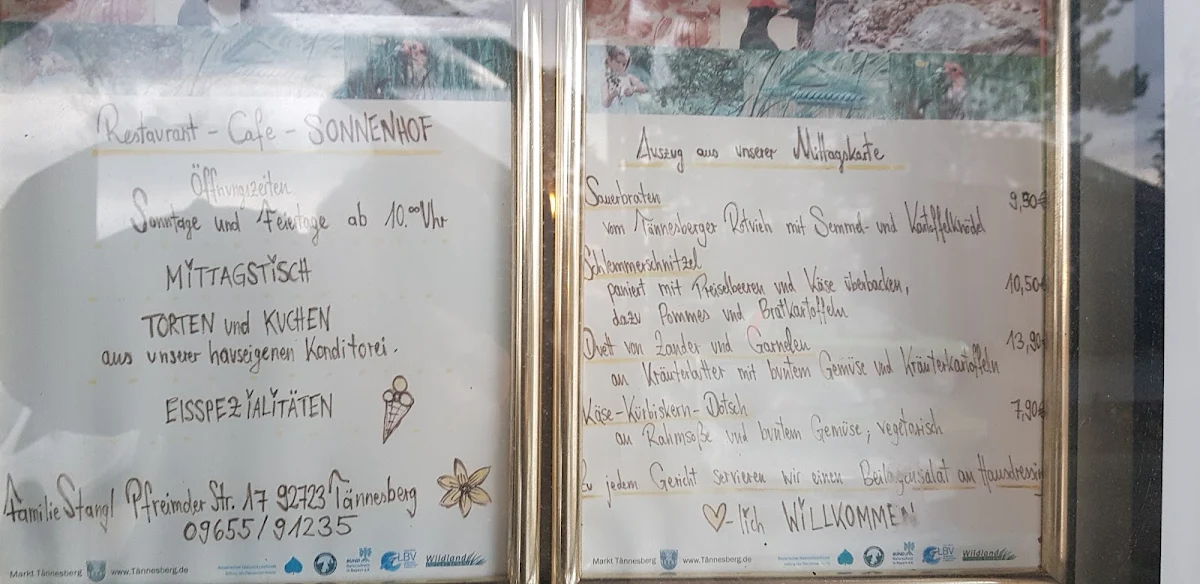 Restaurant - Cafe - SONNENHOF
Öffnungszeiten
Sonntage und Feiertage ab 10.00 Uhr
MITTAGSTISCH
TORTEN und KUCHEN
aus unserer hauseigenen Konditorei.
EISSPEZIALITÄTEN
Familie Stangl Pfreimder Str. 17 92723 Tännesberg
09655/91235
Markt Tännesberg www.Tännesberg.de
LBV
Wildland
Auszug aus unserer Mittagskarte
Sauerbraten 9,90€
vom Tännesberger Rotvieh mit Semmel- und Kartoffelknödel
Schlemmerschnitzel
paniert mit Preiselbeeren und Käse überbacken, 10,50€
dazu Pommes und Bratkartoffeln
Duett von Zander und Garnelen 13,90€
an Kräuterbutter mit buntem Gemüse und Kräuterkartoffeln
Käse-Kürbiskern-Dotsch 7,90€
an Rahmsoße und buntem Gemüse, vegetarisch
Zu jedem Gericht servieren wir einen Beilagensalat an Hausdressin
-lich WILLKOMMEN
Markt Tännesberg www.Tännesberg.de
LBV
Wildland